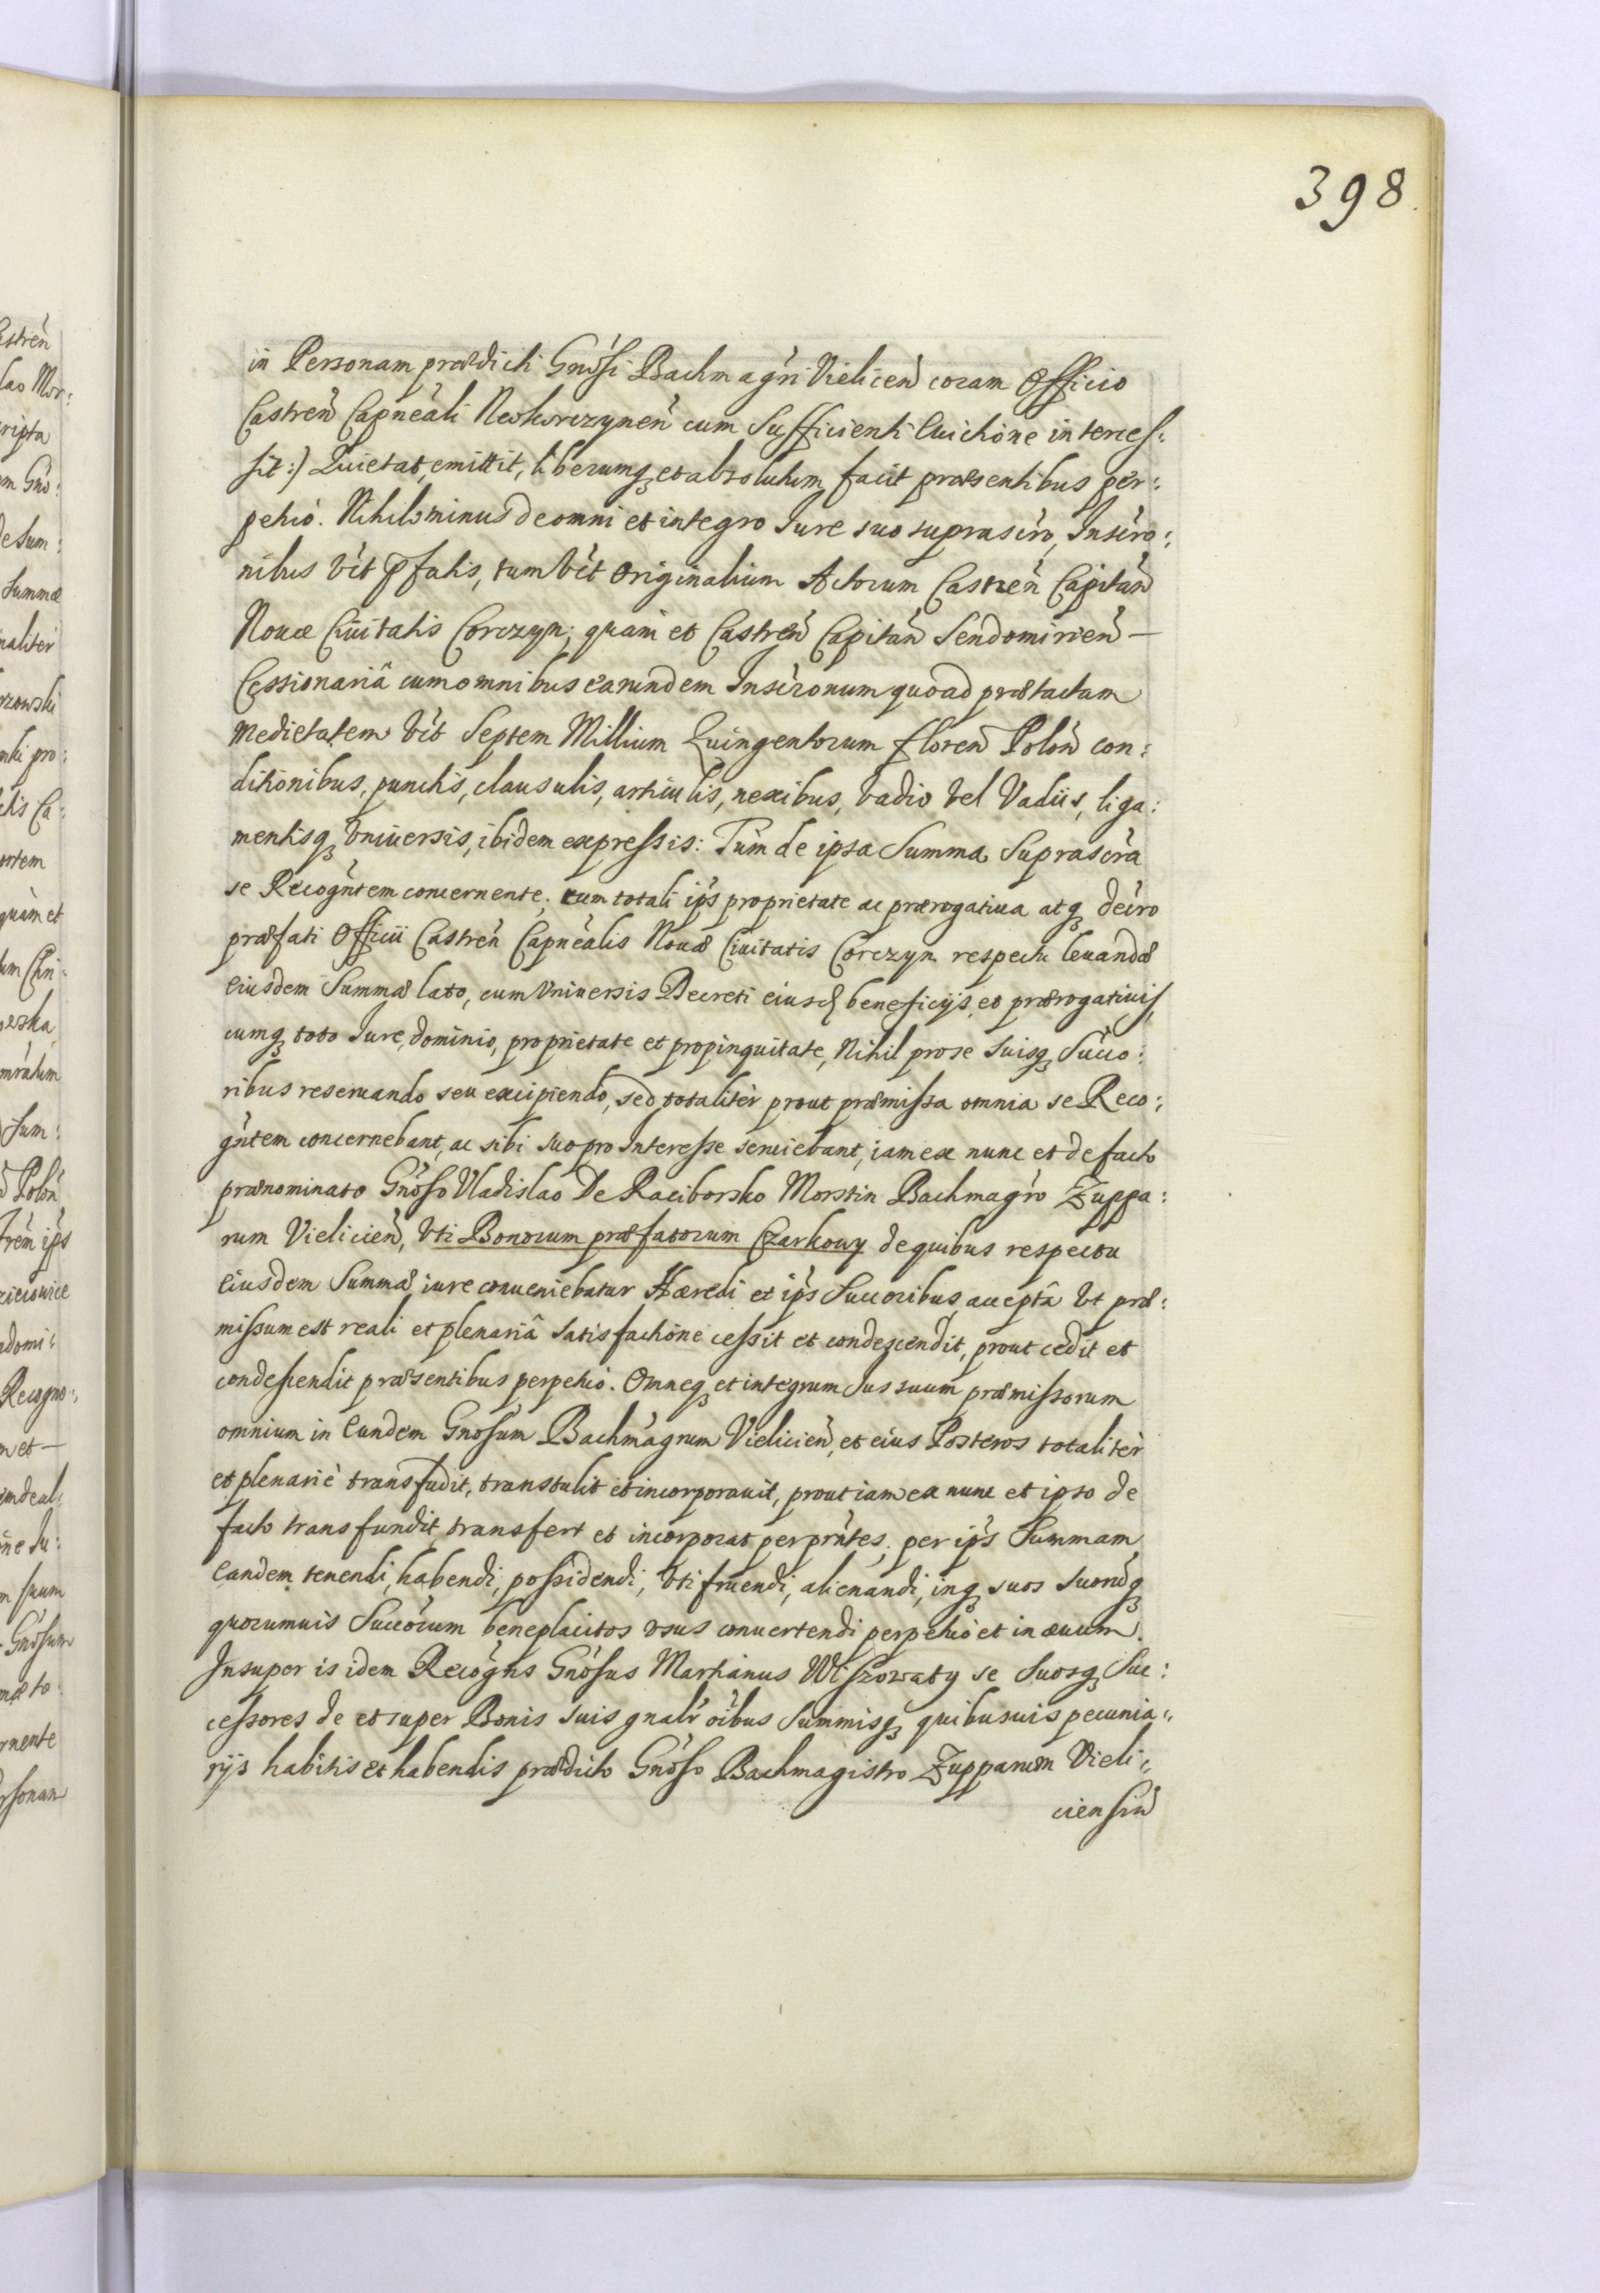 398.
in Personam prædicti Gnosi Bachmagri Vielicen coram Officio
Castren Capneali Neokorczynen cum Sufficienti Euictione interces:
sit:) Quietat, emittit, liberumq et absolutum facit præsentibus per:
petuo. Nihilominus de omni et integro Iure suo suprascro, Inscro:
nibus vit pfatis, tum vit Originalium Actorum Castren Capitan
Nouæ Ciuitatis Corczyn; quam et Castren Capitan Sendomirien —
Cessionariâ cum omnibus earundem Inscronum quoad prætactam
medietatem vit Septem Millium Quingentorum floren Polon con:
ditionibus, punctis, clausulis, articulis, nexibus, vadio vel Vadiis, liga:
mentisq vniuersis, ibidem expressis: Tum de ipsa Summa Suprascra
se Recogntem concernente, cum totali ips proprietate ac prærogatiua atq decro
præfati Officii Castren Capnealis Nouæ Ciuitatis Corczyn respectu leuandæ
eiusdem Summæ lato, cum Vniuersis Decreti eiusd beneficijs et prærogatiuis,
cumq toto Iure, dominio, proprietate et propinquitate, Nihil pro se suisq Succo:
ribus reseruando seu excipiendo, sed totaliter prout præmissa omnia se Reco:
gntem concernebant, ac sibi suo pro Interesse seruiebant, iam ex nunc et de facto
prænominato Gnoso Vladislao De Raciborsko Morstin Bachmagro Zuppa:
rum Vielicien, vti Bonorum præfatorum Czarkowy de quibus respectu
Eiusdem Summæ iure conueniebatur Hæredi et ips Succoribus, acceptâ vt præ:
missum est reali et plenariâ satisfactione cessit et condescendit, prout cedit et
condescendit præsentibus perpetuo. Omneq et integrum Ius suum præmissorum
omnium in Eundem Gnosum Bachmagrum Vielicien, et eius Posteros totaliter
et plenarie transfudit, transtulit et incorporauit, prout iam ex nunc et ipso de
facto transfundit, transfert et incorporat per prntes, per ips Summam
Eandem tenendi, habendi, possidendi, vtifruendi, alienandi, inq suos suorumq
quorumuis Succorum beneplacitos vsus conuertendi perpetuo et in æuum.
Insuper is idem Recogns Gnosus Martianus Wiszowaty se suosq Suc:
cessores de et super Bonis suis gnalr oibus Summisq quibusuis pecunia:
rijs habitis et habendis prædicto Gnoso Bachmagistro Zupparum Vieli:
ciensiu